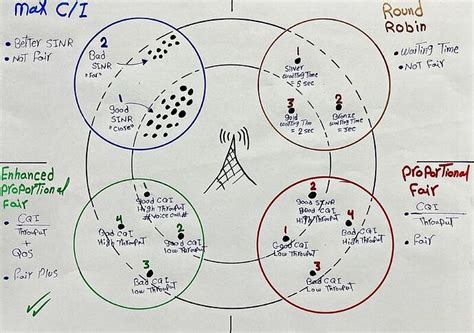 Max C/I
• Better SINR
• Not Fair
2
Bad
SINR
"Far"
1
Good
SINR
"Close"
Round
Robin
• Waiting Time
• Not Fair
1
Silver
Waiting Time
= 5 sec
3
Gold
Waiting Tim
= 2 sec
2
Bronze
Waiting Time
Enhanced
Proportional
Fair
• CQI
Throuput
+
QOS
• Fair Plus
Good CQI
High Throuput
4
Bad CQI
High Throuput
2
Good CQI
Low Throuput
3
Bad CQI
Low Throuput
Proportional
Fair
• CQI
Throuput
• Fair
2
Good SINR
Good CQI
High Throuput
4
Bad CQI
High Throuput
1
Good CQI
Low Throuput
3
Bad CQI
Low Throuput